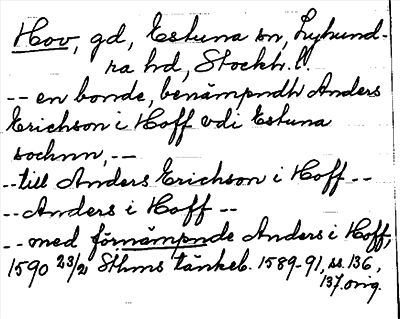 Hov, gd, Estuna sn, Lyhund-
ra hd, Stockh. l.
-- en bonde, benämpndh Anders
Erichson i Hoff vdi Estuna
sochnn, --
-- till Anders Erichson i Hoff --
-- Anders i Hoff --
-- med förnämpnde Anders i Hoff,
1590 23/2 Sthms tänkeb. 1589-91, ss. 136,
137. orig.